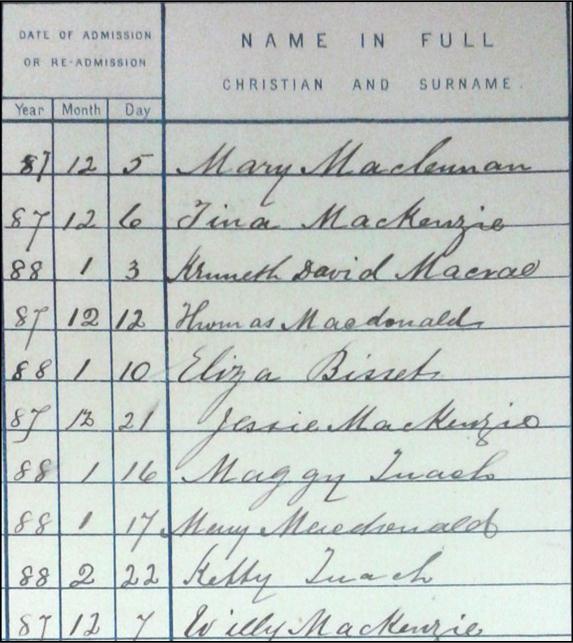 DATE OF ADMISSION
OR RE-ADMISSION
NAME IN FULL
CHRISTIAN AND SURNAME.
Year Month Day
87 12 5 Mary Maclennan
87 12 6 Tina MacKenzie
88 1 3 Kenneth David Macrae
87 12 12 Thomas Macdonald
88 1 10 Eliza Bisset
87 12 21 Jessie MacKenzie
88 1 16 Maggy Tuach
88 1 17 Mary Macdonald
88 2 22 Ketty Tuach
87 12 7 Willy MacKenzie